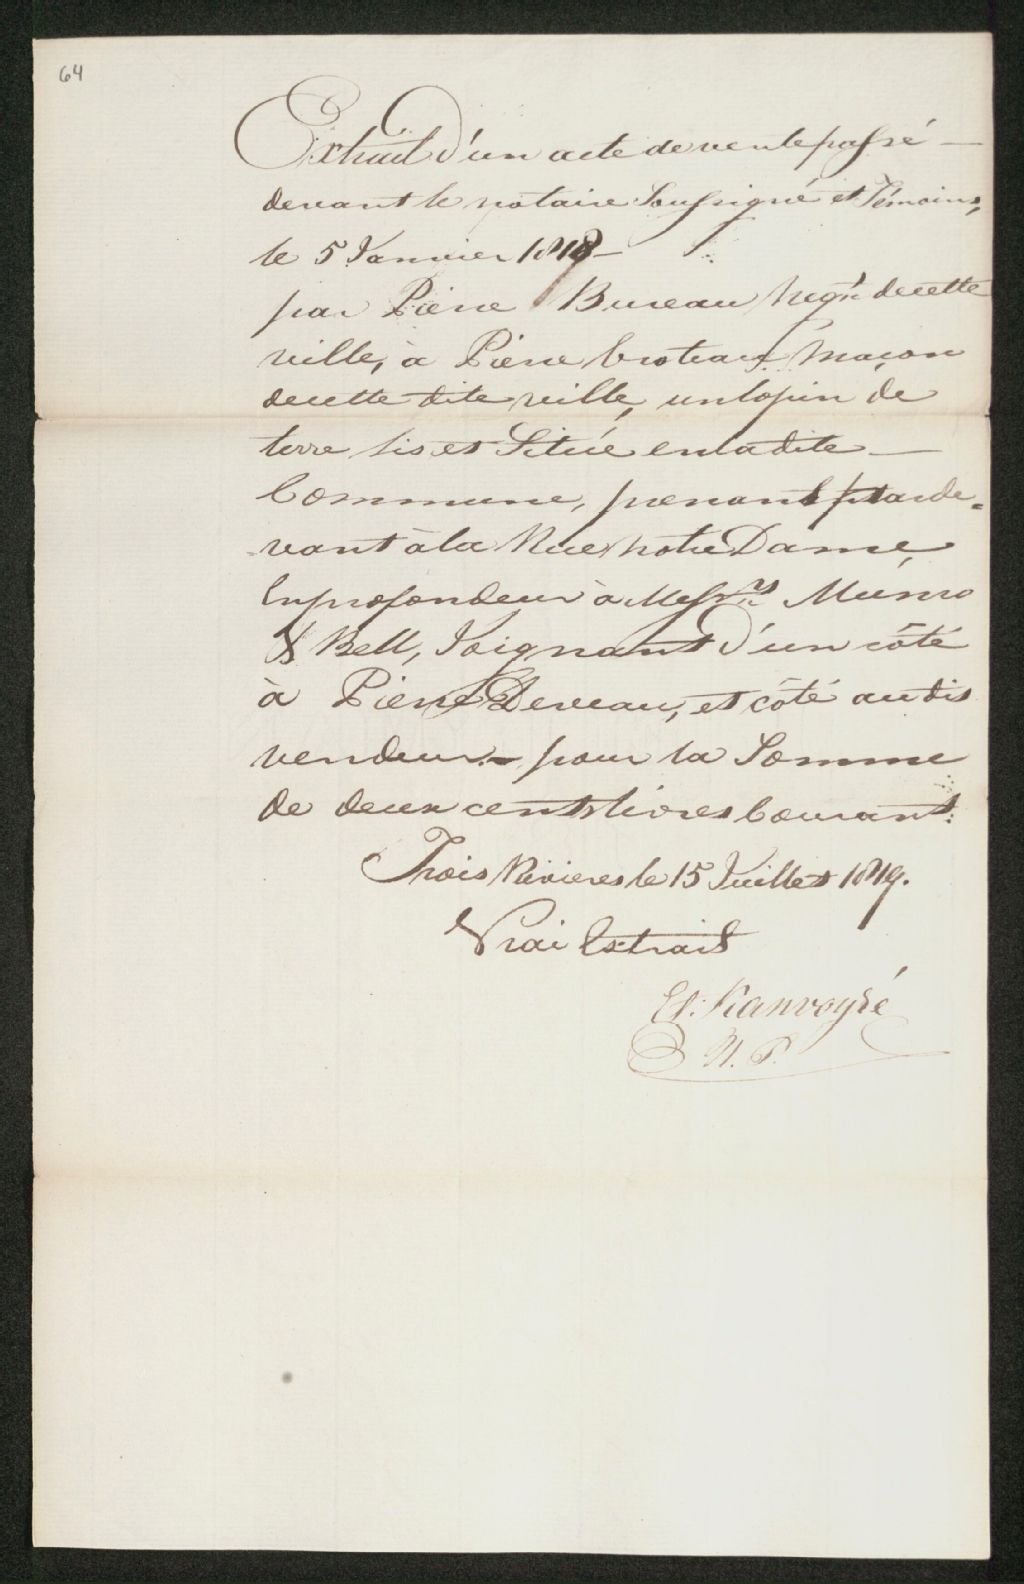 64
Extrait d'un acte de vente passé —
devant le notaire Soussigné et Témoins,
le 5 Janvier 1818 —
par Pierre Bureau Neg.t decette
ville, à Pierre Croteau Maçon
decette dite ville, un lopin de
terre sis et Situé en ladite —
Commune, prenant parde=
vant à la Rue notre Dame,
En profondeur à Mess.rs Munro
& Bell, Joignant d'un côté
à Pierre Deveau, et côté au dit
vendeur — pour la Somme
de deux cents livres Courant.
Trois Rivieres le 15 Juillet 1819.
Vrai Extrait
Et. Ranvoyzé
N. P.